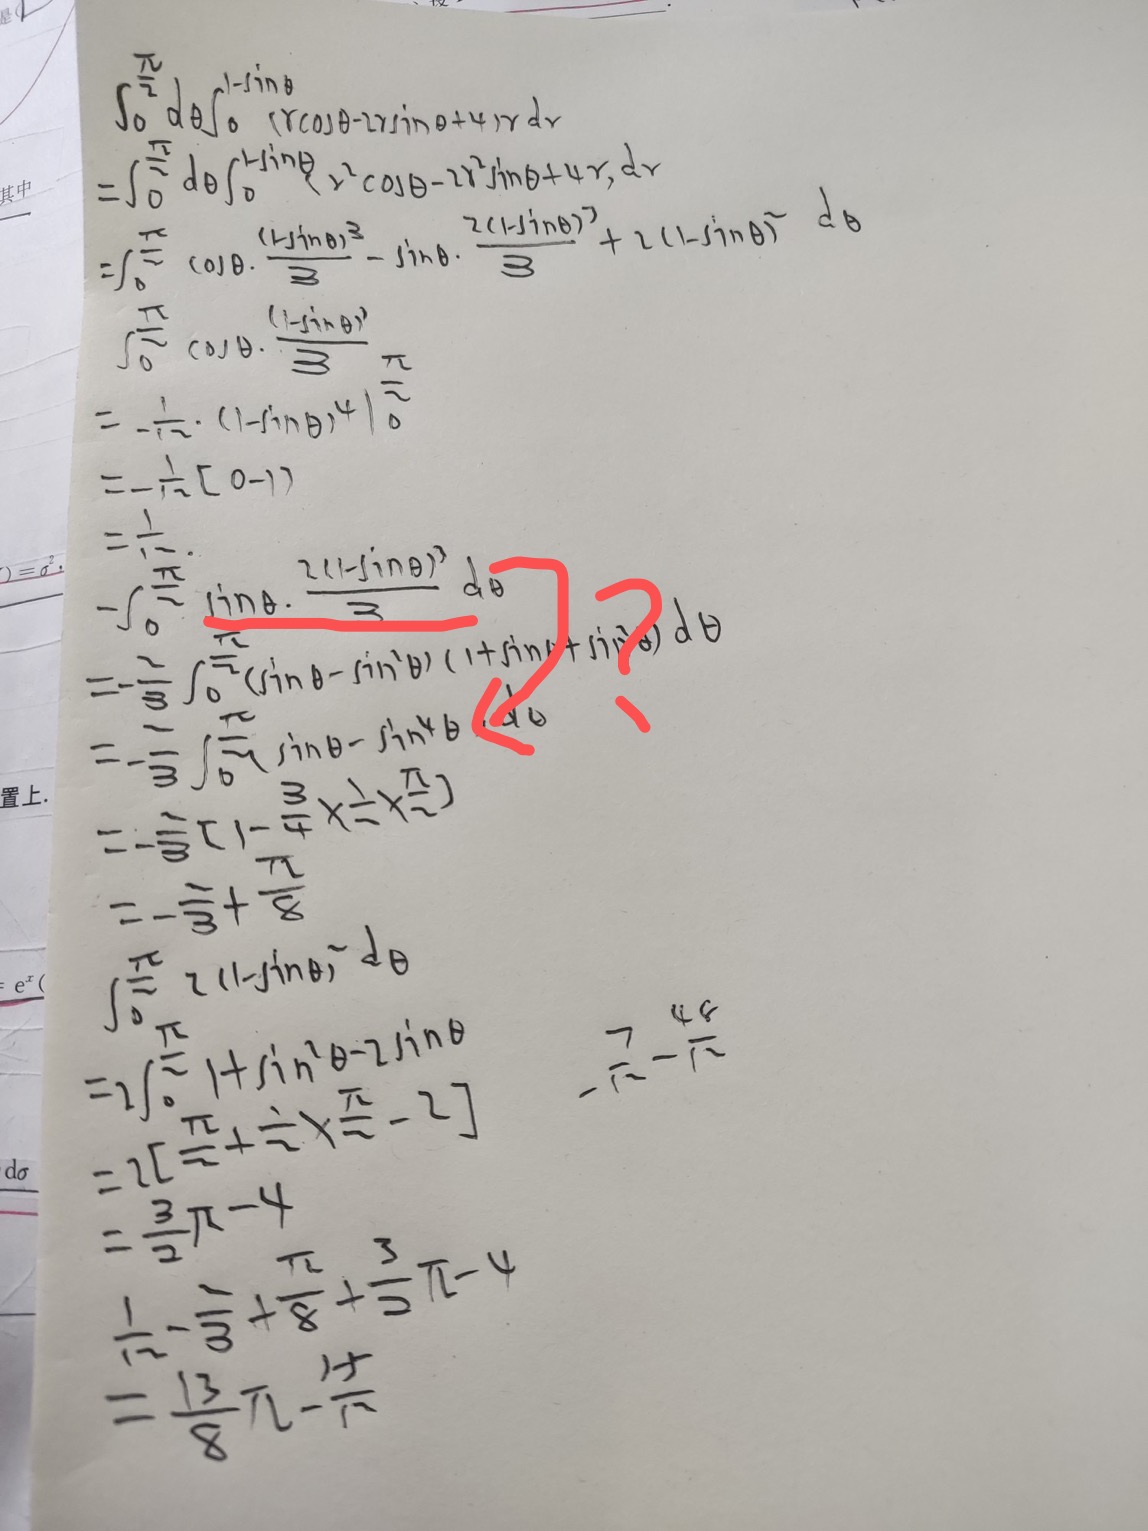 ∫₀^(π/2) dθ ∫₀^(1-sinθ) (rcosθ-2rsinθ+4)r dr
=∫₀^(π/2) dθ ∫₀^(1-sinθ) (r²cosθ-2r²sinθ+4r) dr
=∫₀^(π/2) cosθ·(1-sinθ)³/3 - sinθ·2(1-sinθ)³/3 + 2(1-sinθ)² dθ
∫₀^(π/2) cosθ·(1-sinθ)³/3
=-1/12·(1-sinθ)⁴|₀^(π/2)
=-1/12[0-1)
=1/12.
-∫₀^(π/2) sinθ·2(1-sinθ)³/3 dθ
?
=-2/3 ∫₀^(π/2) (sinθ-sin²θ)(1+sinθ+sin²θ) dθ
=-2/3 ∫₀^(π/2) (sinθ-sin⁴θ) dθ
=-2/3[1-3/4×1/2×π/2]
=-2/3+π/8
∫₀^(π/2) 2(1-sinθ)² dθ
=2∫₀^(π/2) 1+sin²θ-2sinθ
=2[π/2+1/2×π/2-2]
=3/2π-4
1/12-2/3+π/8+3/2π-4
-7/12-48/12
其中
)=σ².
置上.
= eˣ(
dσ